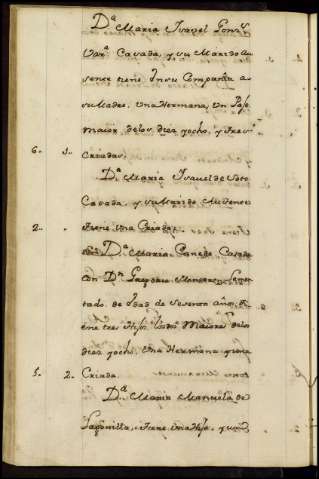 Dª Maria Ysavel Gonz
Varª Casada, y su Marido Au
sente tiene Insu Compania a
su Madre, Una Hermana, Un Yjo
maior, delos diez yocho, y tres
6. 3. Criadas.
Dª Maria Ysavel de Soto
Casada, y su Marido Ausente
2. tiene Una Criada.
Dª Maria Caneda Casada
con Dn Gregorio
tado, de Edad de Setenta años, ti
ene tres Hijos Maiores delos
diez yocho, Una Hermana y una
5. 2. Criada.
Dª Maria Manuela de
tiene Una Hija, y